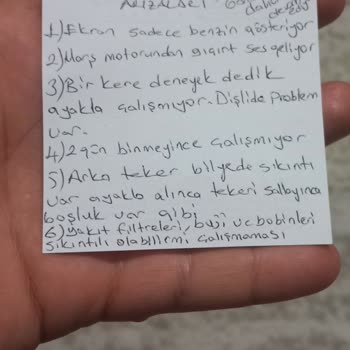 ARIZALARI
daha değişi
1) Ekran sadece benzin gösteriyor
2) Marş motorundan gıgırt ses geliyor
3) Bir kere deneyek dedik
ayakla çalışmıyor. Dişlide Problem
var.
4) 2 gün binmeyince çalışmıyor
5) Arka teker bilyede sıkıntı
var ayaklı alınca tekeri sallayınca
boşluk var gibi
6) yakıt filtreleri, buji ve bobinleri
sıkıntılı olabilirmi çalışmaması